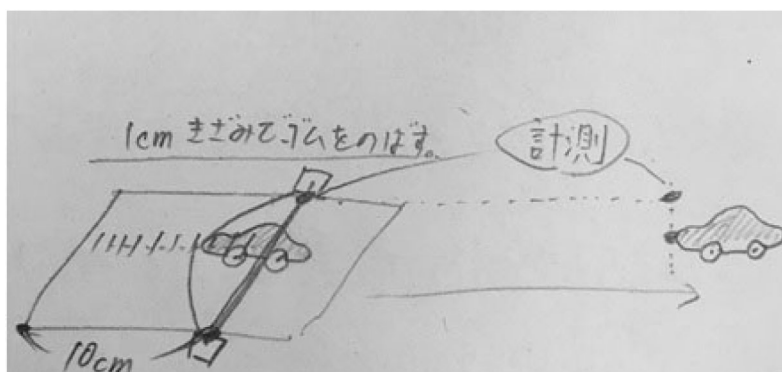 1cm きざみでゴムをのばす。
計測
10cm